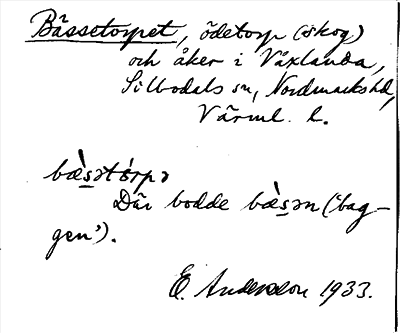 Bässetorpet, ödetorp (skog)
och åker i Växlanda,
Silbodals sn, Nordmarks hd,
Värml. l.
bæ̀s̲ətórpə
Där bodde bæ̀s̲ən ('bag-
gen').
E. Anderson 1933.